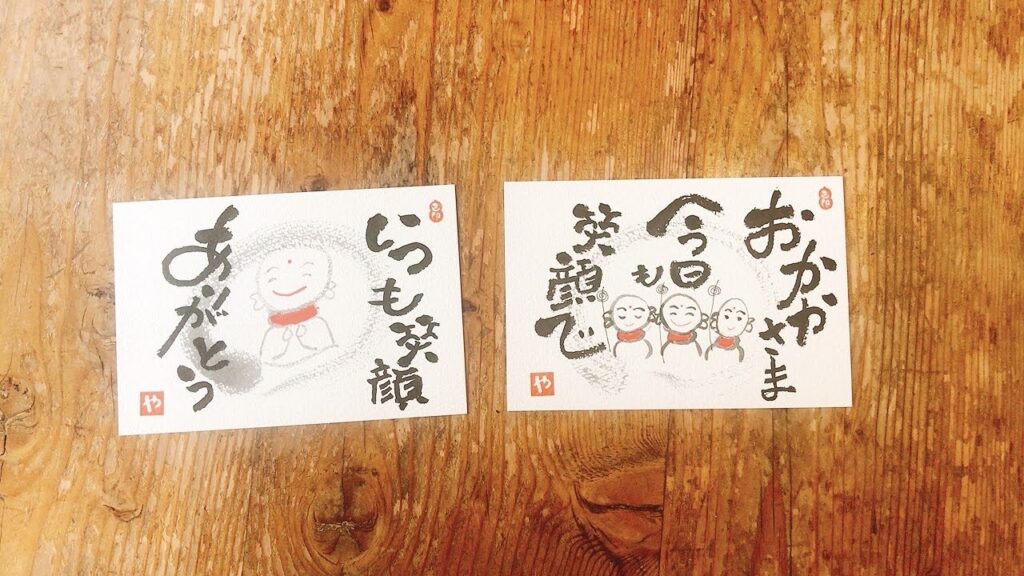 いつも笑顔
ありがとう
や
おかげさま
今日も
笑顔で
や